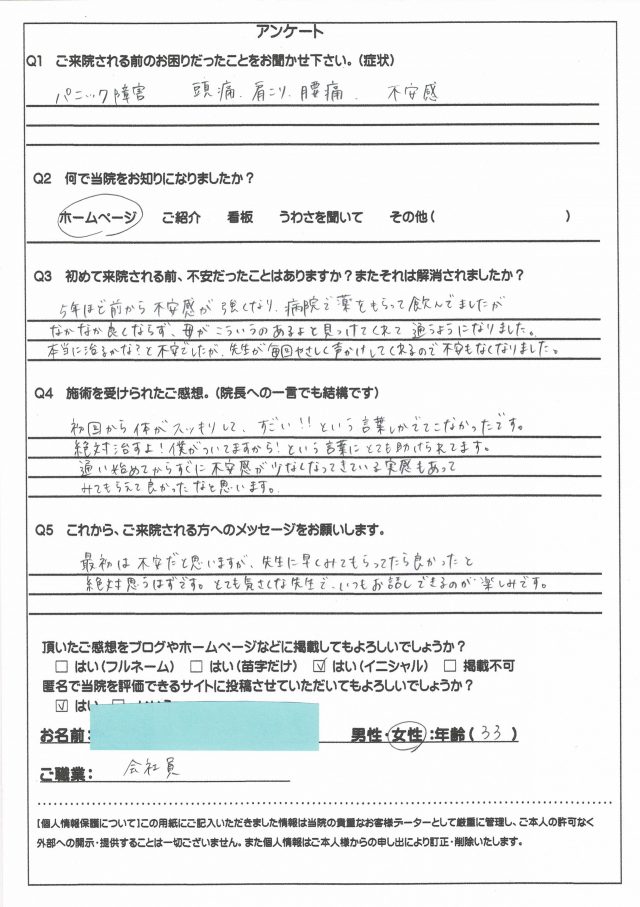 アンケート
Q1 ご来院される前のお困りだったことをお聞かせ下さい。(症状)
パニック障害 頭痛、肩こり、腰痛、不安感
Q2 何で当院をお知りになりましたか？
ホームページ ご紹介 看板 うわさを聞いて その他( )
Q3 初めて来院される前、不安だったことはありますか？またそれは解消されましたか？
5年ほど前から不安感が強くなり、病院で薬をもらって飲んでましたが
なかなか良くならず、母がこういうのあるよと見つけてくれて通うようになりました。
本当に治るかな？と不安でしたが、先生が毎回やさしく声かけしてくれるので不安もなくなりました。
Q4 施術を受けられたご感想。(院長への一言でも結構です)
初回から体がスッキリして、すごい!!という言葉しかでてこなかったです。
絶対治すよ！僕がついてますから！という言葉にとても助けられてます。
通い始めてからすぐに不安感が少なくなってきている実感もあって
みてもらえて良かったなと思います。
Q5 これから、ご来院される方へのメッセージをお願いします。
最初は不安だと思いますが、先生に早くみてもらってたら良かったと
絶対思うはずです。とても気さくな先生で、いつもお話しできるのが楽しみです。
頂いたご感想をブログやホームページなどに掲載してもよろしいでしょうか？
□ はい(フルネーム) □ はい(苗字だけ) ☑ はい(イニシャル) □ 掲載不可
匿名で当院を評価できるサイトに投稿させていただいてもよろしいでしょうか？
☑ はい □
お名前: 男性・女性:年齢(33)
ご職業: 会社員
【個人情報保護について】この用紙にご記入いただきました情報は当院の貴重なお客様データーとして厳重に管理し、ご本人の許可なく
外部への開示・提供することは一切ございません。また個人情報はご本人様からの申し出により訂正・削除いたします。